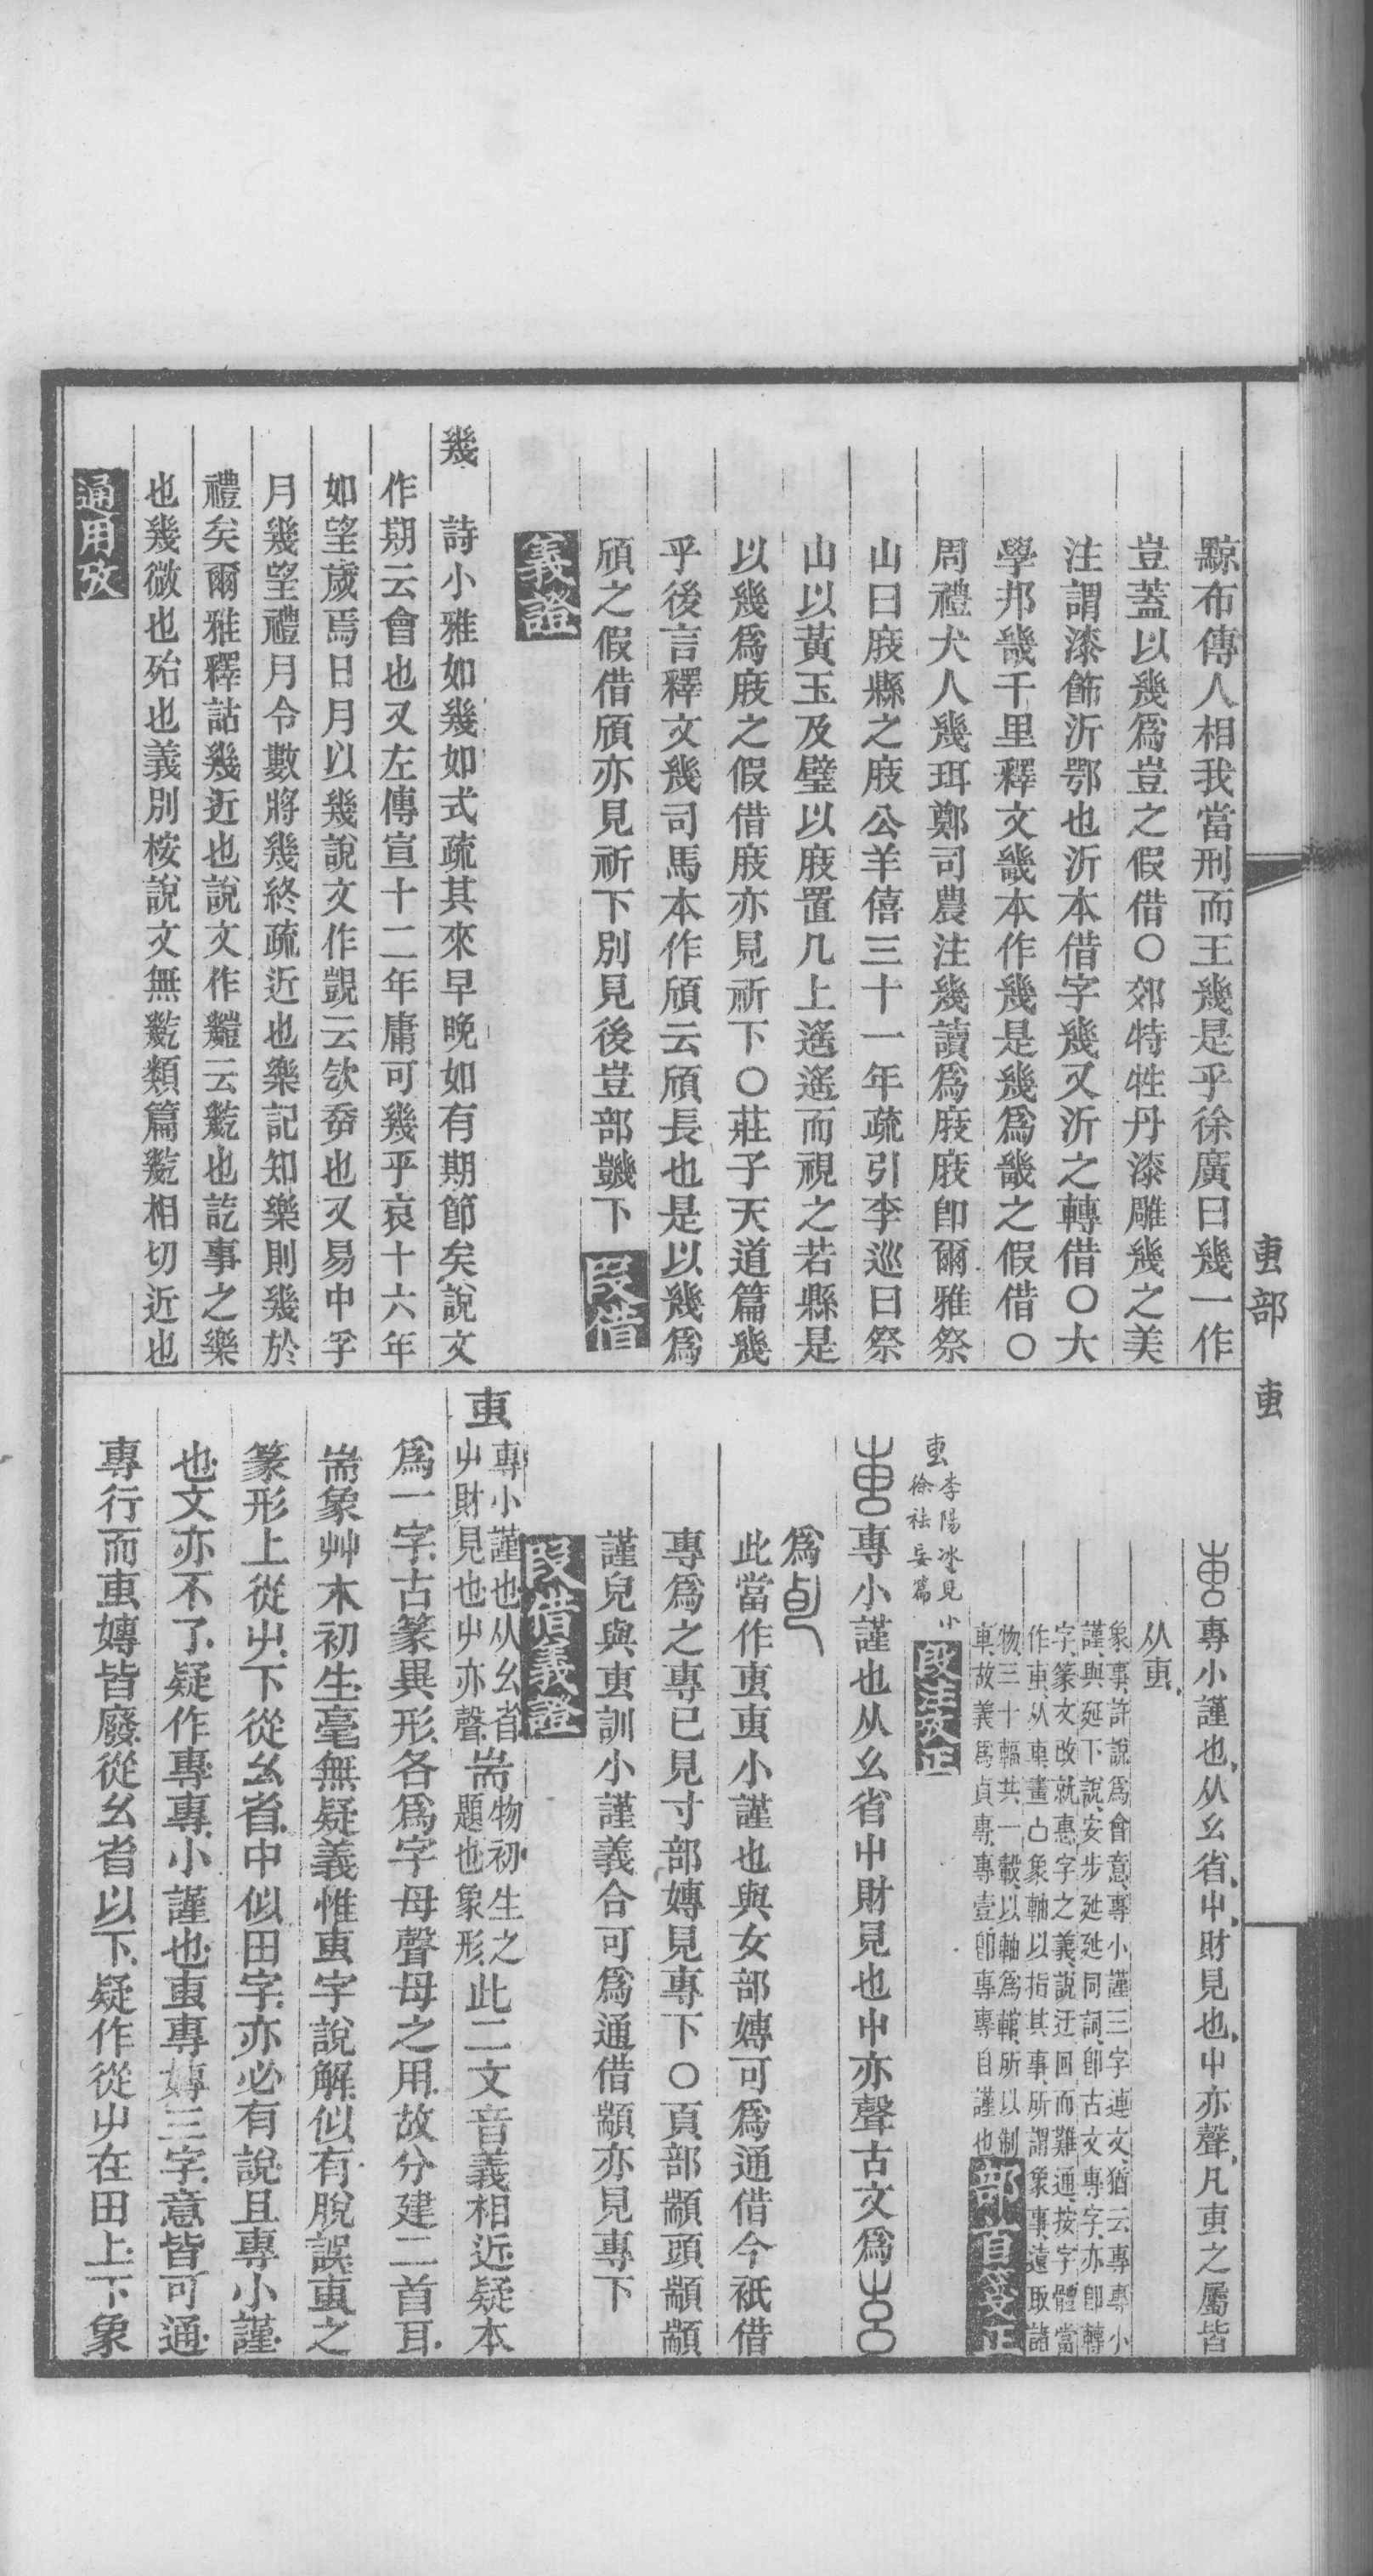 黥布傳人相我當刑而王幾是乎徐廣曰幾一作
豈蓋以幾爲豈之假借○郊特牲丹漆雕幾之美
注謂漆飾沂鄂也沂本借字幾又沂之轉借○大
學邦畿千里釋文畿本作幾是幾爲畿之假借○
周禮犬人幾珥鄭司農注幾讀爲庪庪卽爾雅祭
山曰庪縣之庪公羊僖三十一年疏引李巡曰祭
山以黃玉及璧以庪置几上遙遙而視之若縣是
以幾爲庪之假借庪亦見祈下○莊子天道篇幾
乎後言釋文幾司馬本作頎云頎長也是以幾爲
頎之假借頎亦見祈下別見後豈部䡾下 段借
義證
幾 詩小雅如幾如式疏其來早晚如有期節矣說文
作期云會也又左傳宣十二年庸可幾乎哀十六年
如望歲焉日月以幾說文作覬云欱㚔也又易中孚
月幾望禮月令數將幾終疏近也樂記知樂則幾於
禮矣爾雅釋詁幾近也說文作䡾云䡾也訖事之樂
也幾微也殆也義別桉說文無䡾類篇䡾相切近也
通用攷
叀部 叀
叀專小謹也从幺省屮財見也屮亦聲凡叀之屬皆
从叀
象事許說爲會意專小謹三字連文猶云專專小
謹與延下說安步延延同詞卽古文專字亦卽轉
字篆文改就惠字之義說迂回而難通按字體當
作叀从車畫凵象軸以指其事所謂象事遠取諸
物三十輻共一轂以軸爲輨所以制
車故義爲貞專專壹卽專專自謹也 部首箋正
叀 李陽冰見小
徐袪妄篇 段注攷正
叀專小謹也从幺省屮財見也屮亦聲古文爲
爲
此當作叀叀小謹也與女部嫥可爲通借今祇借
專爲之專已見寸部嫥見專下○頁部顓頭顓顓
謹皃與叀訓小謹義合可爲通借顓亦見專下
段借義證
叀 專小謹也从幺省
屮財見也屮亦聲 耑 物初生之
題也象形 此二文音義相近疑本
爲一字古篆異形各爲字母聲母之用故分建二首耳
耑象艸木初生毫無疑義惟叀字說解似有脫誤叀之
篆形上從屮下從幺省中似田字亦必有說且專小謹
也文亦不了疑作專專小謹也叀專嫥三字意皆可通
專行而叀嫥皆廢從幺省以下疑作從屮在田上下象